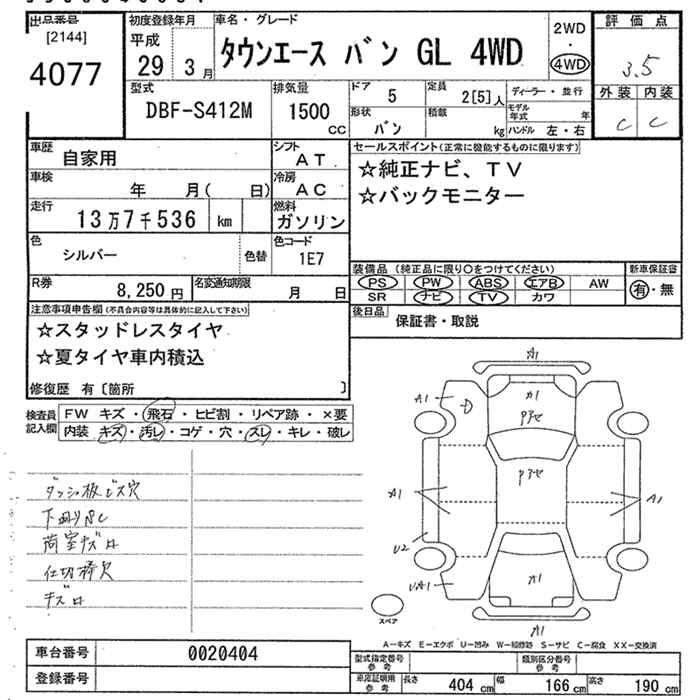 出品番号
[2144]
4077
初度登録年月
平成
29 3月
車名・グレード
タウンエース バン GL 4WD
2WD
・
4WD
評価点
3.5
外装 内装
C C
型式
DBF-S412M
排気量
1500
cc
ドア
5
定員
2[5]人
ディーラー・並行
モデル年式 年
形状
バン
積載
kg
ハンドル 左・右
車歴
自家用
シフト
AT
車検
年 月( 日)
冷房
AC
走行
13万7千536 km
燃料
ガソリン
色
シルバー
色替
色コード
1E7
R券
8,250円
名変通知期限
月 日
セールスポイント(正常に機能するものに限ります)
☆純正ナビ、TV
☆バックモニター
装備品 (純正品に限り○をつけてください)
新車保証書
PS PW ABS エアB AW
有・無
SR ナビ TV カワ
後日品
保証書・取説
注意事項申告欄(不具合内容等は具体的に記入して下さい)
☆スタッドレスタイヤ
☆夏タイヤ車内積込
修復歴 有〔箇所 〕
検査員記入欄
FW キズ・飛石・ヒビ割・リペア跡・×要
内装 キズ・汚レ・コゲ・穴・スレ・キレ・破レ
ダッシュ板ビス穴
下廻りSC
荷室キズ凹
仕切棒欠
キズ凹
A1
A1
A1
アタセ
アタセ
A1
A1
U2
UA1
A1
A1
スペア
A-キズ E-エクボ U-凹み W-補修跡 S-サビ C-腐食 XX-交換済
車台番号
0020404
登録番号
型式指定番号
参考
類別区分番号
参考
車庫証明用
参考
長さ 404cm 幅 166cm 高さ 190cm